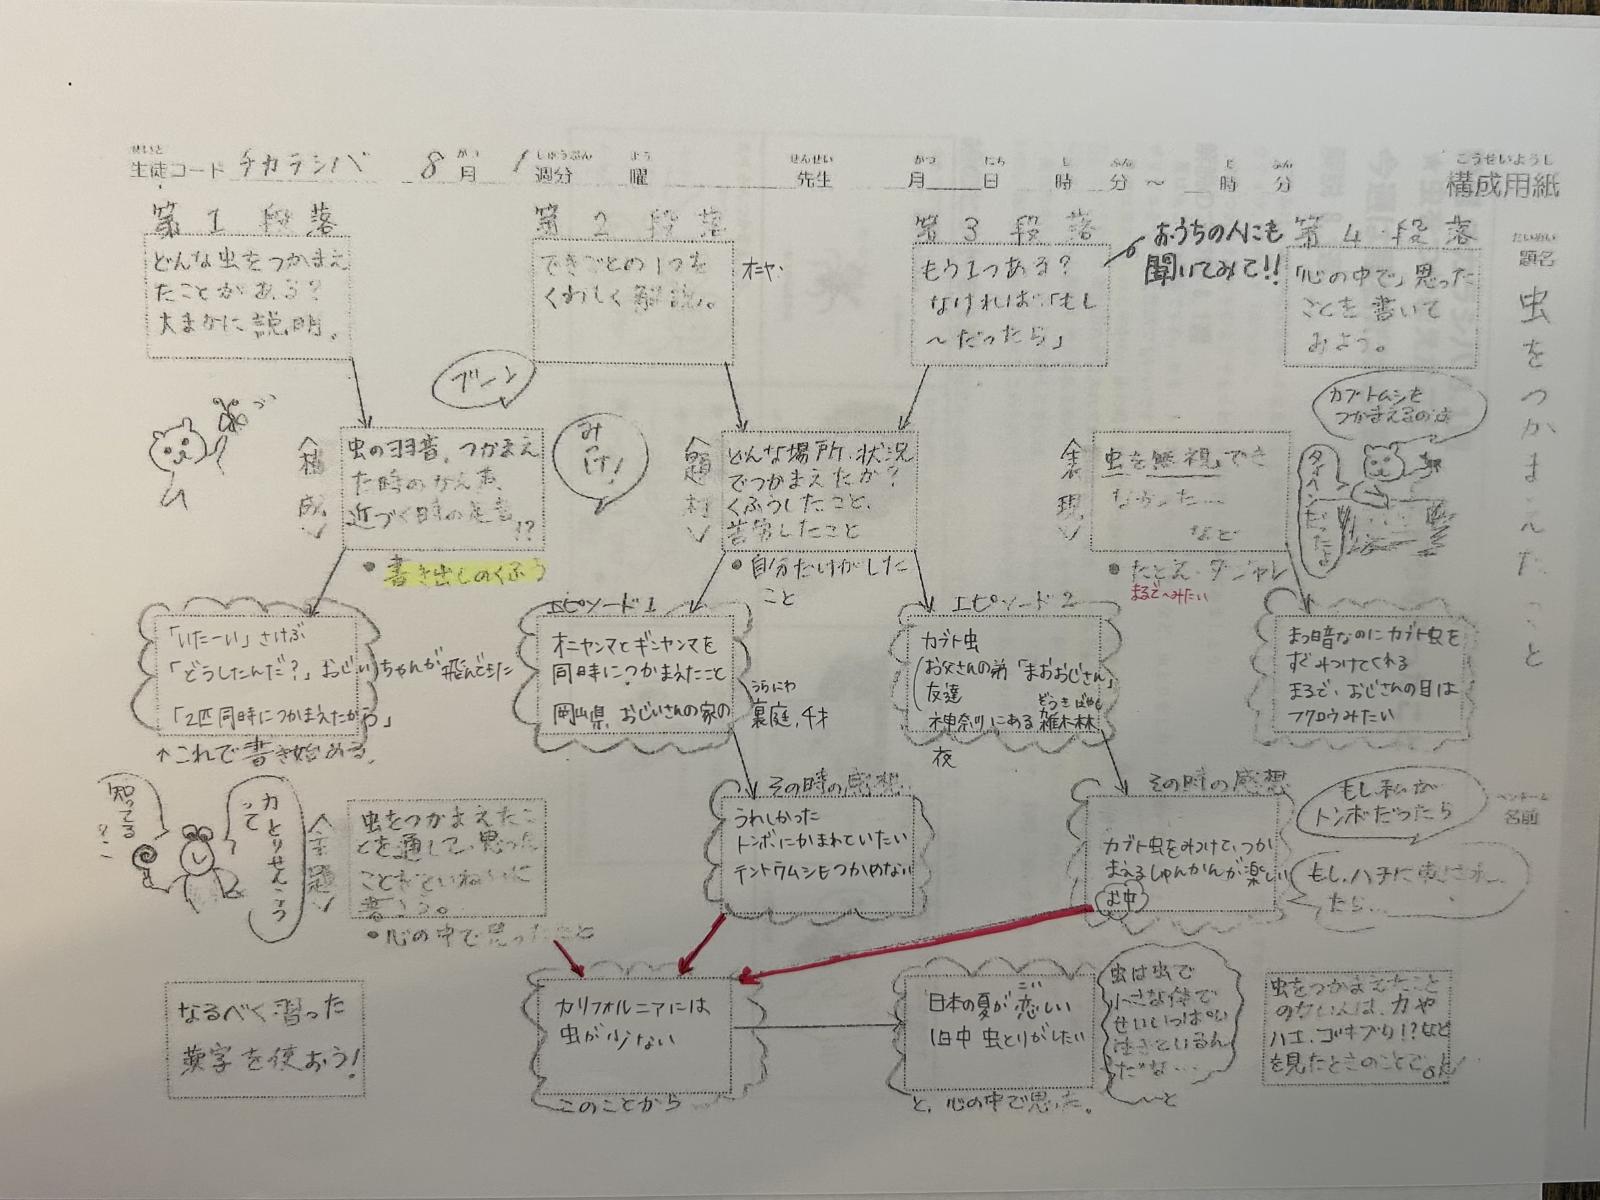 せいと
生徒コード チカラシバ 8月 1週分 曜 先生 月 日 時 分 〜 時 分
がつ しゅうぶん よう せんせい がつ にち じ ふん じ ふん
こうせいようし
構成用紙
だいめい
題名
虫をつかまえたこと
第1段落
どんな虫をつかまえ
たことがある?
大まかに説明。
第2段落
できごとの1つを
くわしく解説。
オニヤ
第3段落
もう1つある?
なければ、「もし
〜だったら」
おうちの人にも
聞いてみて!!
第4段落
「心の中で」思った
ことを書いて
およう。
ブーン
〈構成〉
虫の羽音、つかまえ
た時のかん声、
近づく時の足音
!?
● 書き出しのくふう
みっけ!
〈題材〉
どんな場所・状況
でつかまえたか?
くふうしたこと、
苦労したこと
● 自分だけがした
こと
〈表現〉
虫を無視でき
なかった…
など
● たとえ・ダジャレ
まるで〜みたい
カブトムシを
つかまえるのは
タイヘンだったよ
「いたーい」さけぶ
「どうしたんだ?」おじいちゃんが飛んできた
「2匹同時につかまえたから」
↑これで書き始める。
エピソード1
オニヤンマとギンヤンマを
同時につかまえたこと
岡山県 おじいさんの家の
うらにわ
裏庭,千才
エピソード2
カブト虫
お父さんの弟「まおおじさん」
友達
ぞうきばやし
神奈川にある雑木林
夜
まっ暗なのにカブト虫を
すぐみつけてくれる
まるで、おじさんの目は
フクロウみたい
知ってる?
カとりせんこうって
〈主題〉
虫をつかまえたこ
とを通して、思った
ことをていねいに
書こう。
● 心の中で思ったこと
その時の感想
うれしかった
トンボにかまれていたい
テントウムシもつかめない
その時の感想
カブト虫をみつけて、つか
まえるしゅんかんが楽しい
ペンネーム
名前
もし私が
トンボだったら
もし、ハチに刺され
たら…
なるべく習った
漢字を使おう!
カリフォルニアには
虫が少ない
このことから
こい
日本の夏が恋しい
1日中 虫とりがしたい
と、心の中で思った。
虫は虫で
小さな体で
せいいっぱい
生きているん
だな…
〜と
虫をつかまえたこと
のない人は、カや
ハエ、ゴキブリ!?など
を見たときのことでOK!